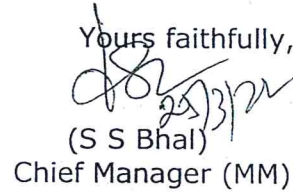 Yours faithfully,
(S S Bhal)
Chief Manager (MM)